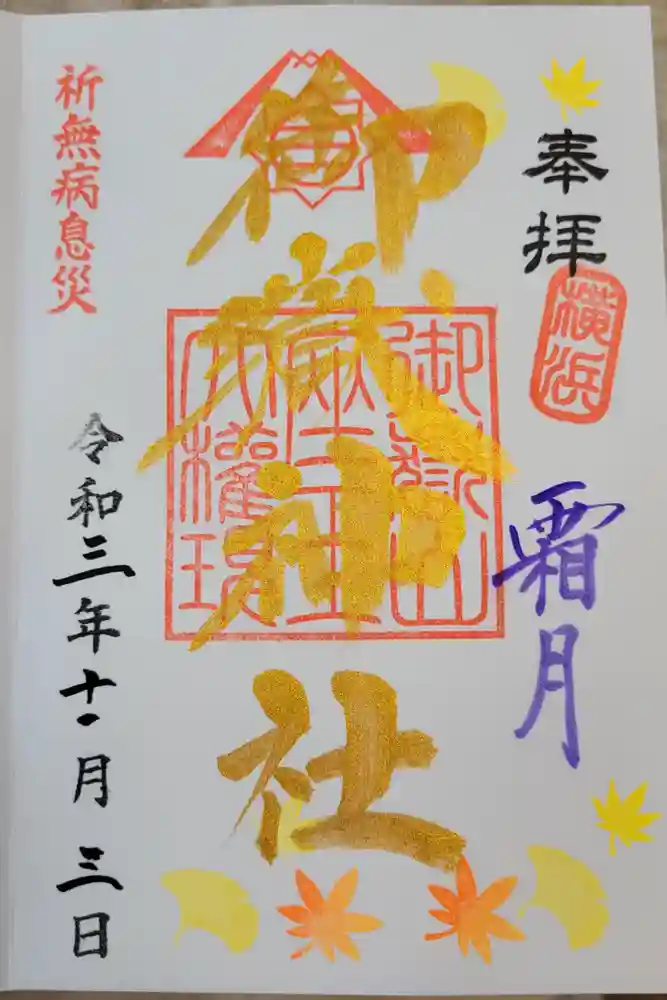 奉拝
横浜
霜月
御嶽神社
御嶽山
藏王
大權現
祈無病息災
令和三年十一月三日